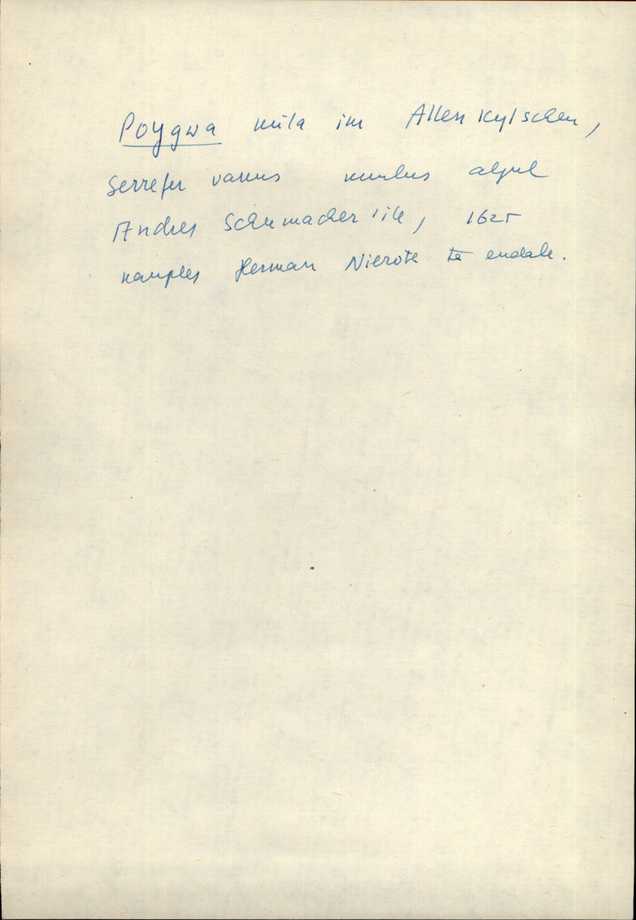 Poygwa küla im Allenkylschen,
Serrefer vanus kuulus algul
Andres Schumacher'ile, 1625
kauples Herman Nierote ta endale.